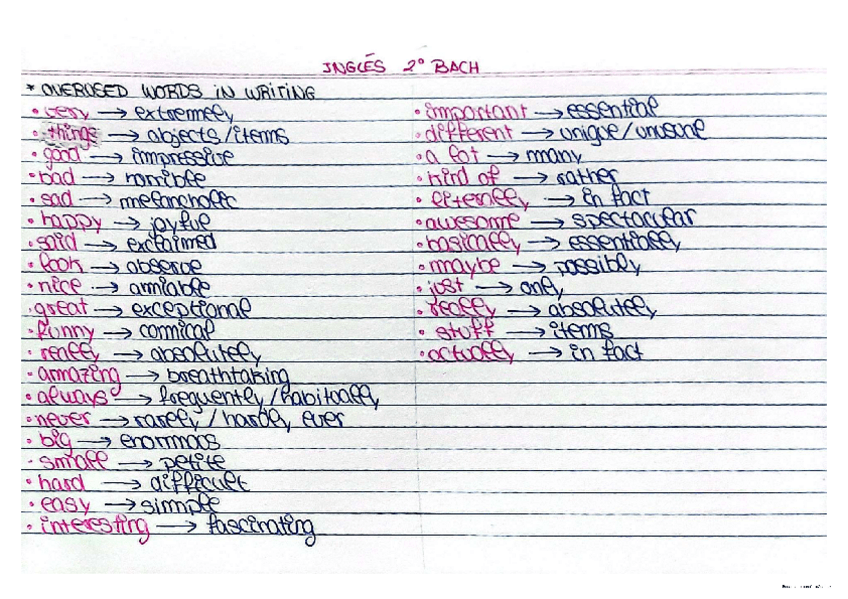 INGLÉS 2º BACH
* OVERUSED WORDS IN WRITING
• very → extremely
• things → objects/items
• good → impressive
• bad → horrible
• sad → melancholic
• happy → joyful
• said → exclaimed
• look → observe
• nice → amiable
• great → exceptional
• funny → comical
• really → absolutely
• amazing → breathtaking
• always → frequently/habitually
• never → rarely/hardly ever
• big → enormous
• small → petite
• hard → difficult
• easy → simple
• interesting → fascinating
• important → essential
• different → unique/unusual
• a lot → many
• kind of → rather
• literally → in fact
• awesome → spectacular
• basically → essentially
• maybe → possibly
• just → only
• really → absolutely
• stuff → items
• actually → in fact